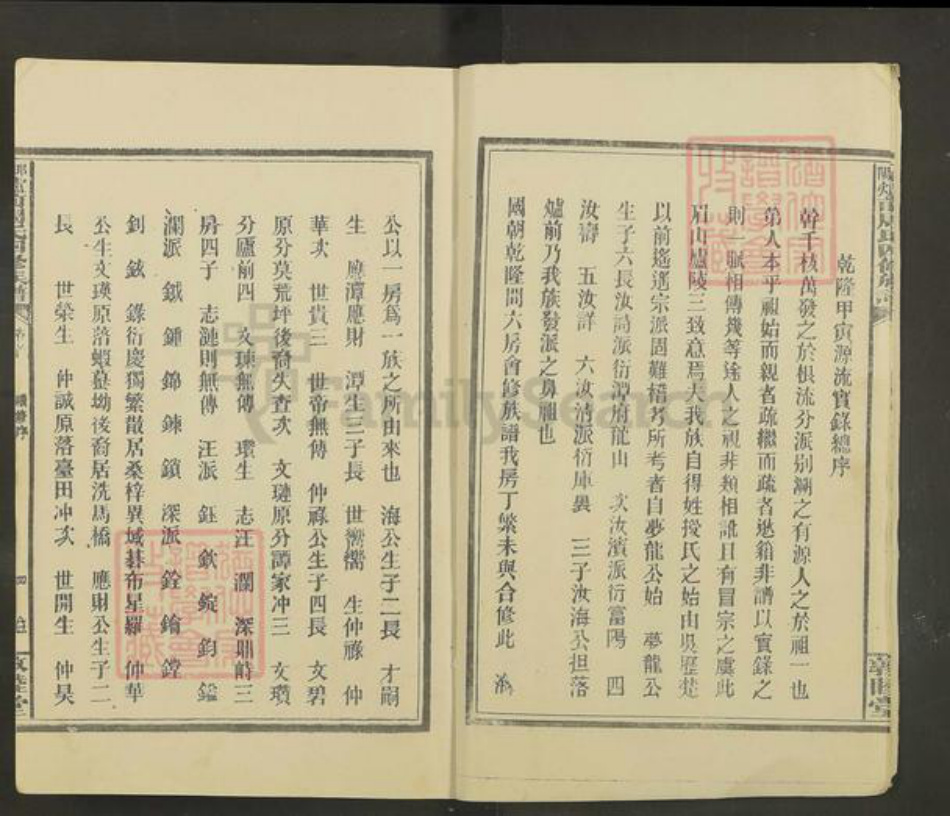 乾隆甲寅源流實錄總序
幹千枝萬發之於根流分派別溯之有源人之於祖一也
第人本乎祖始而親者疏繼而疏者逖籍非譜以實錄之
則一脈相傳幾等途人之視非類相訛且有冒宗之虞此
眉山廬陵三致意焉夫我族自得姓授氏之始由吳歷楚
以前遙遙宗派固難稽考所考者自夢龍公始 夢龍公
生子六長汝詩派衍潭府龍山 次汝濱派衍富陽 四
汝濤 五汝詳 六汝清派衍庫裊 三子汝海公担落
爐前乃我族發派之鼻祖也
國朝乾隆間六房會修族譜我房丁繁未與合修此 海
公以一房爲一族之所由來也 海公生子二長 才嗣
生 應潭應財 潭生三子長 世 生仲祿 仲
華次 世貴三 世帝無傳 仲祿公生子四長 文碧
原分莫荒坪後裔失查次 文璉原分譚家冲三 文瓚
分廬前四 文㻋無傳 瓚生 志汪 瀾 深 三
房四子 志漣則無傳 汪派 鈺 欽 錠 鈞 鎰
瀾派 鉞 鍾 錦 鍊 鎖 深派 鏜 鑰 鏜
釗 鉉 錄衍慶獨繁散居桑梓異域碁布星羅 仲華
公生文瑛原落蝦蟇坳後裔居洗馬橋 應財公生子二
長 世榮生 仲誠原落臺田冲次 世開生 仲昊
FamilySearch